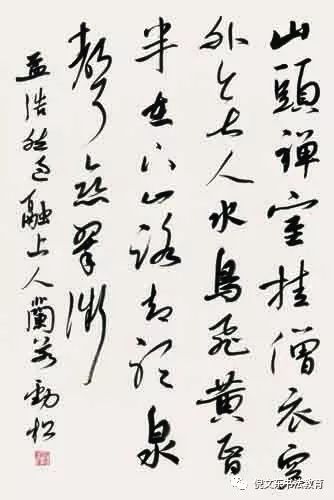 山頭禅室挂僧衣窗
外無人水鳥飛黄昏
半在下山路却听泉
聲恋翠微
孟浩然过融上人蘭若 勁松
倪文东书法教育